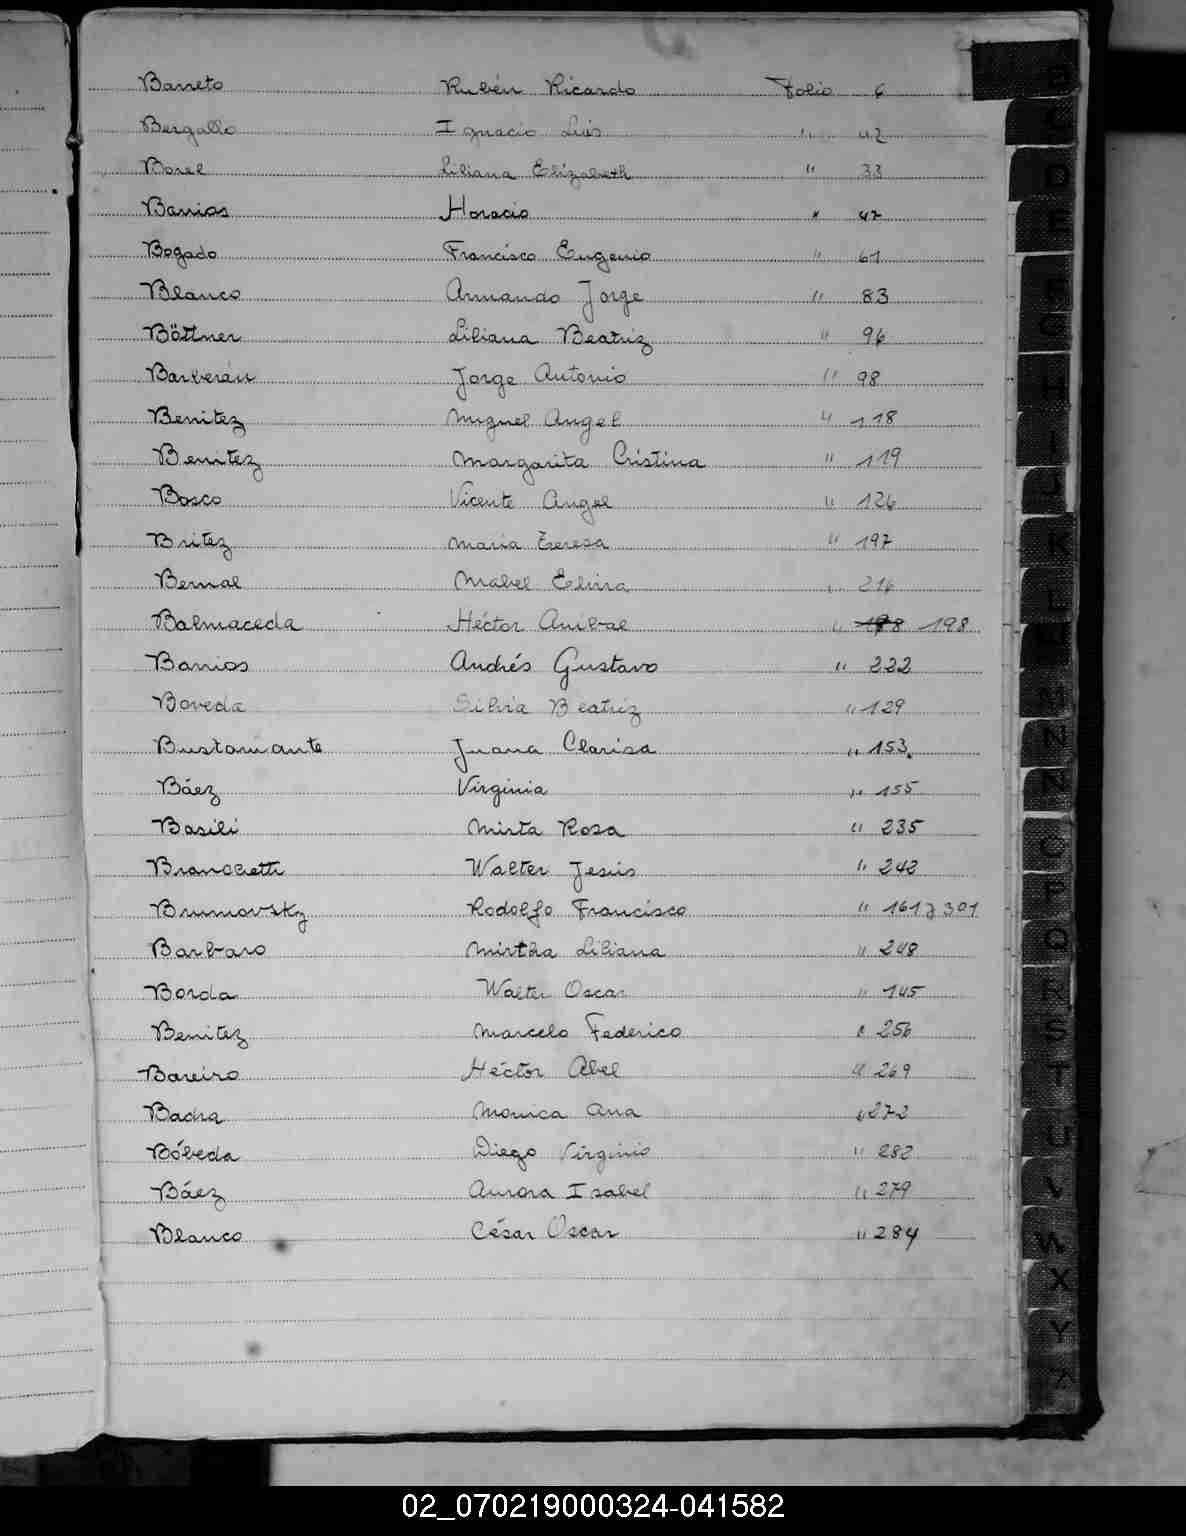 Barreto Rubén Ricardo Folio 6
Bergallo Ignacio Luis " 42
Borel Liliana Elizabeth " 33
Barrios Horacio " 47
Bogado Francisco Eugenio " 61
Blanco Armando Jorge " 83
Böttner Liliana Beatriz " 96
Barberán Jorge Antonio " 98
Benitez Miguel Angel " 118
Benitez Margarita Cristina " 119
Bosco Vicente Angel " 126
Britez Maria Teresa " 197
Bernal Mabel Elvira " 216
Balmaceda Héctor Anibal " 198
Barrios Andrés Gustavo " 222
Boveda Silvia Beatriz " 129
Bustamante Juana Clarisa " 153.
Báez Virginia " 155
Basili Mirta Rosa " 235
Walter Jesús " 242
Brumovsky Rodolfo Francisco " 161 y 301
Barbaro Mirtha Liliana " 248
Borda Walter Oscar " 145
Benitez Marcelo Federico " 256
Bareiro Héctor Abel " 269
Badra Monica Ana " 272
Bóbeda Diego Virginio " 282
Báez Aurora Isabel " 279
Blanco César Oscar " 284
B
C
D
E
F
G
H
I
J
K
L
M
N
Ñ
O
P
Q
R
S
T
U
V
W
X
Y
Z
02_070219000324-041582